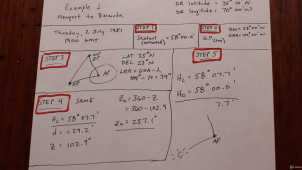 Example 1
Newport to Bermuda
DR latitude = 35° N
DR longitude = 70° W
Thursday, 2 July 1981
1900 GMT
STEP 1
Sextant = 58° 00.0'
(corrected)
STEP 2
G.P.
Dec = 23° N
STEP 3
LAT 35° N
DEC 23° N
LHA = GHA - λ
AP
STEP 4 SAME
Hc = 58° 07.7'
d = -29.2'
Z = 102.9°
Zn = 360 - Z
= 360 - 102.9
Zn = 257.1°
STEP 5
Hc = 58° 07.7'
Ho = 58° 00.0'
7.7'
AP